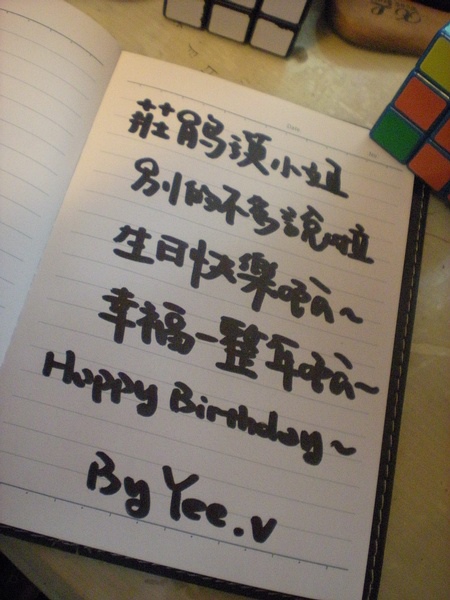 莊鵑漢小姐
別的不多說啦
生日快樂哈~
幸福一整年哈~
Happy Birthday~
By Yee.v